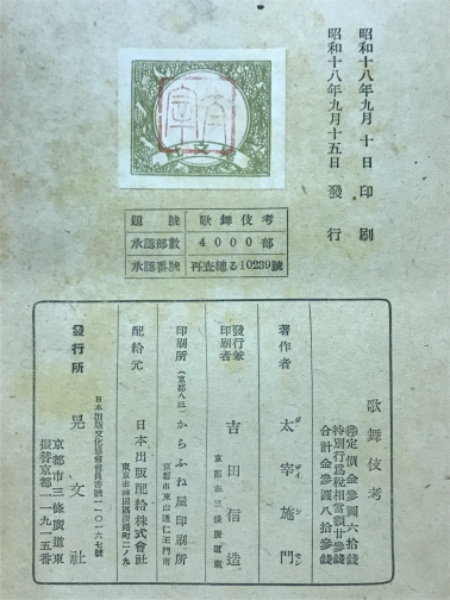 昭和十八年九月 十 日 印 刷
昭和十八年九月十五日 發 行
文
題 號 歌舞伎考
承認部數 4000部
承認番號 再査總る10239號
歌 舞 伎 考
定價金參圓六拾錢
特別行爲稅相當額廿參錢
合計金參圓八拾參錢
著作者 太宰施門
ダ ザイ シ モン
發行兼印刷者 吉田信造
京都市三條廣道東
印刷所 (京都八三) からふね屋印刷所
京都市東山通仁王門南
配給元 日本出版配給株式會社
東京市神田區淡路町二ノ九
日本出版文化協會會員番號一一〇一六七號
發行所 晃文社
京都市三條廣道東
振替京都二一九一五番